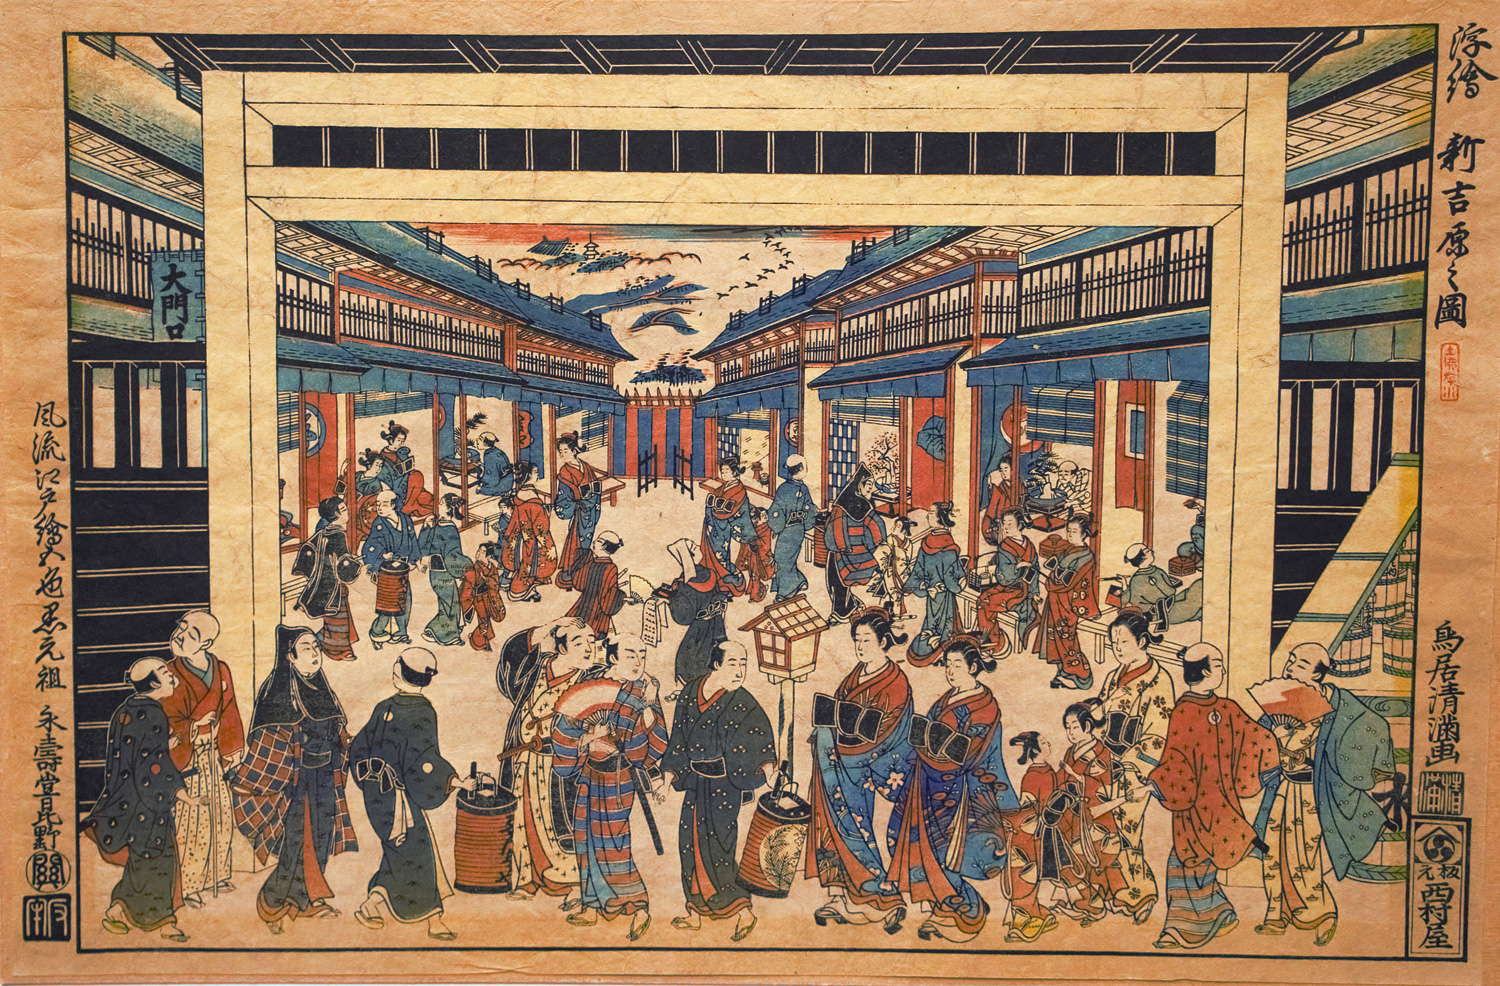 浮繪 新吉原之圖
大門口
鳥居清滿画
清滿
元板
西村屋
風流江戸繪五色墨元祖 永壽堂